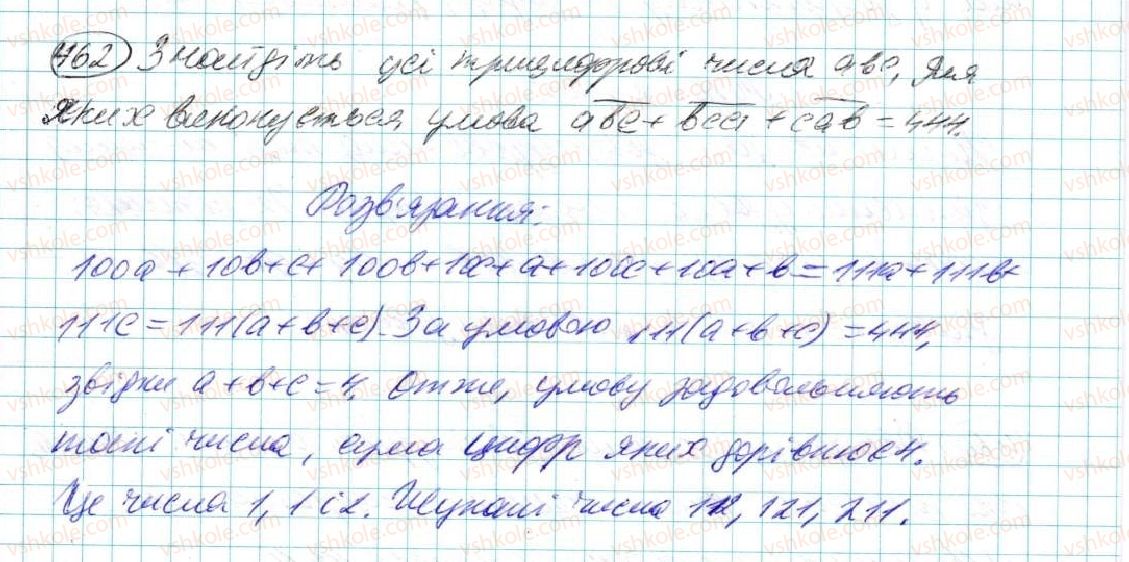 462 Знайдіть усі трицифрові числа авс, для
яких виконується умова авс + вса + сав = 444.
Розв'язання:
100а + 10в + с + 100в + 10с + а + 100с + 10а + в = 111а + 111в +
111с = 111(а + в + с). За умовою 111(а + в + с) = 444,
звідки а + в + с = 4. Отже, умову задовольняють
такі числа, сума цифр яких дорівнює 4.
Це числа 1, 1 і 2. Шукані числа 112, 121, 211.